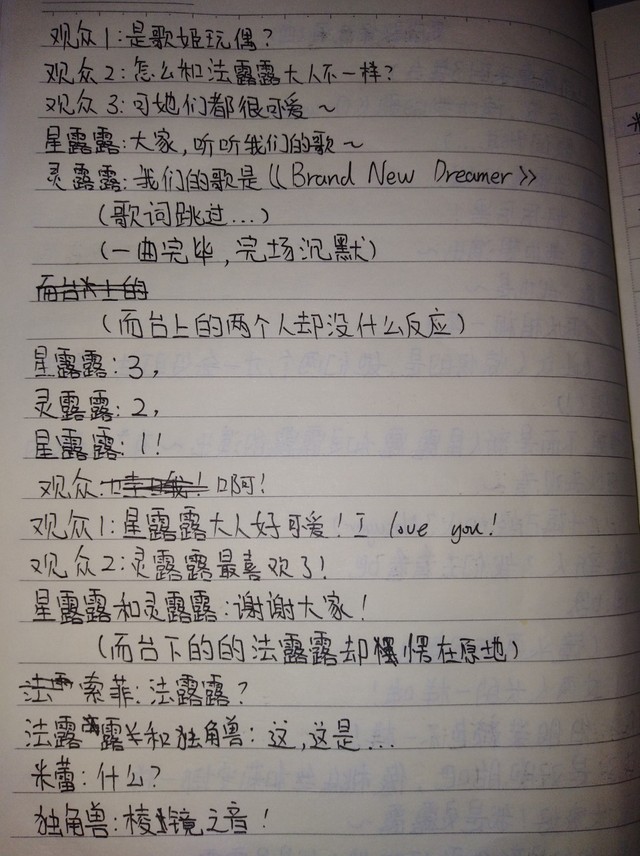 观众1:是歌姬玩偶?
观众2:怎么和法露露大人不一样?
观众3:可她们都很可爱~
星露露:大家,听听我们的歌~
灵露露:我们的歌是《Brand New Dreamer》
(歌词跳过...)
(一曲完毕,完场沉默)
(而台上的两个人却没什么反应)
星露露:3,
灵露露:2,
星露露:1!
观众:啊!
观众1:星露露大人好可爱!I love you!
观众2:灵露露最喜欢了!
星露露和灵露露:谢谢大家!
(而台下的的法露露却愣在原地)
索菲:法露露?
法露露和独角兽:这,这是...
米蕾:什么?
独角兽:棱镜之音!